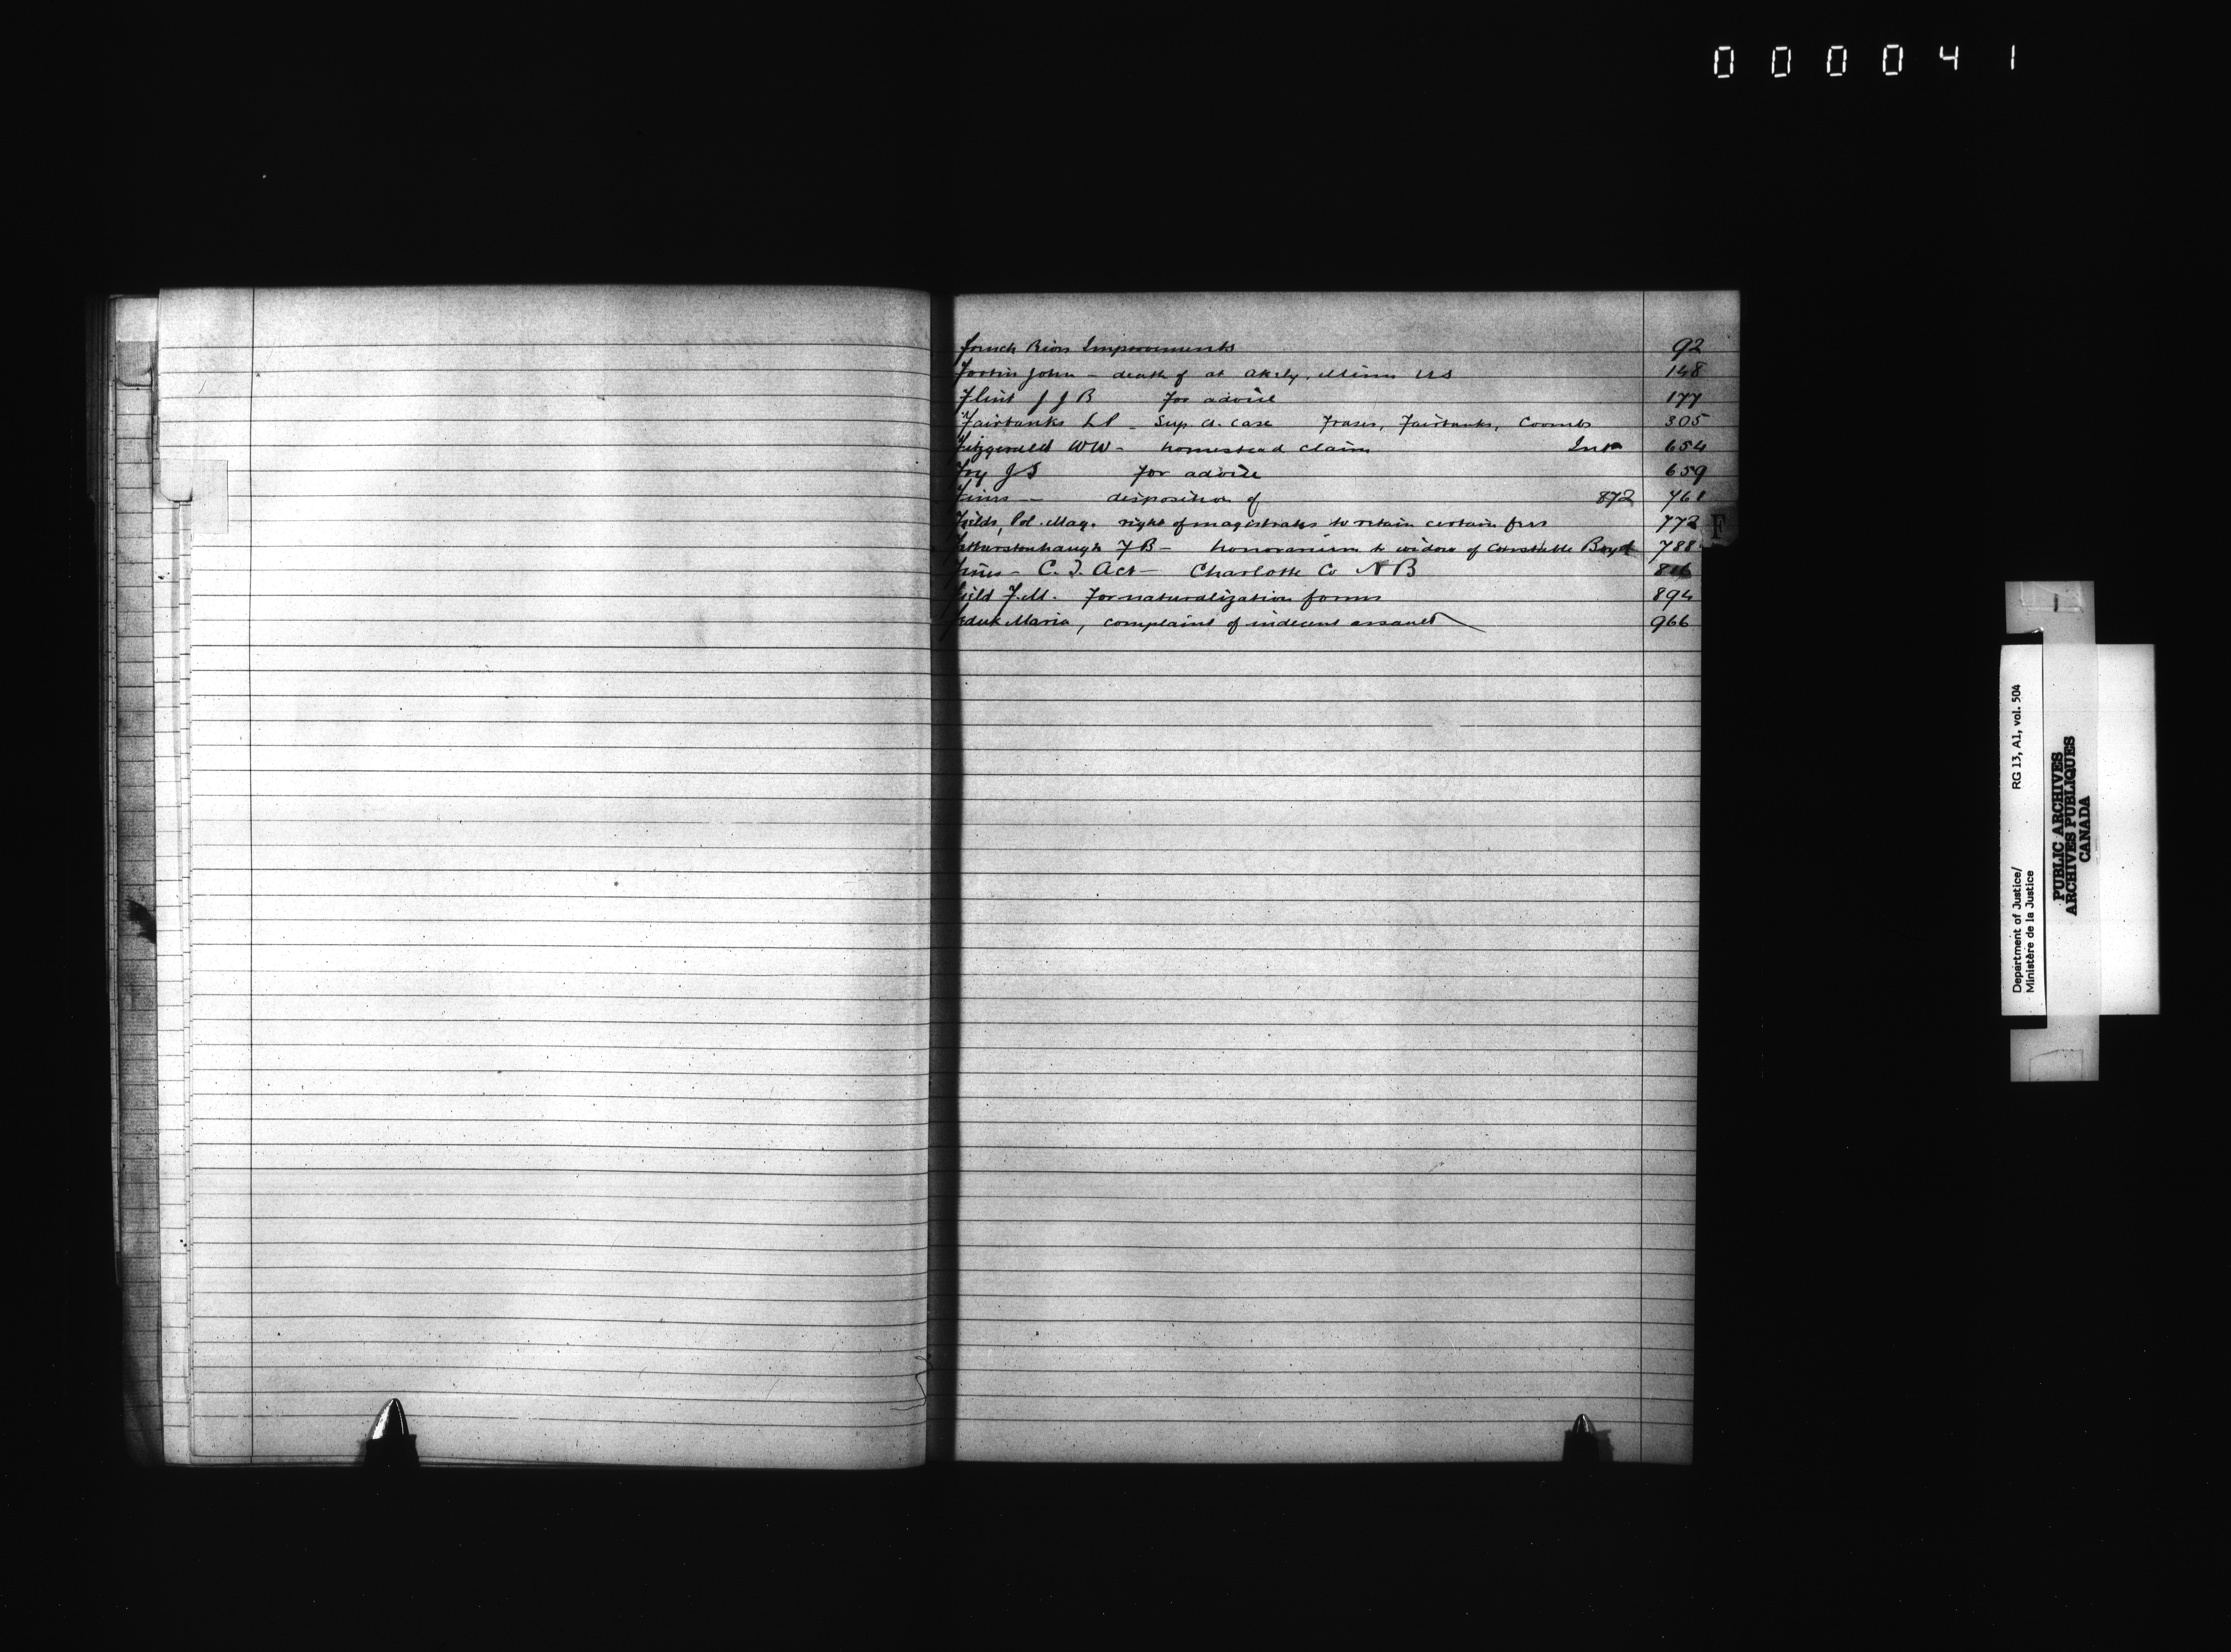 000041
French River Improvements 92
Fortin John - death of at Akely, Minn US 148
Flint J J B For advice 177
Fairbanks L P - Sup. Ct. Case Fraser, Fairbanks, Coombs 305
Fitzgerald WW - homestead claim Intr 654
Foy J S For advice 659
Fines - disposition of 872 761
Fields, Pol. Mag. right of magistrates to retain certain fees 772
F
Fetherstonhaugh F B - honorarium to widow of Constable Boyd 788
Fines - C. T. Act - Charlotte Co N B
Field F. M. For naturalization forms 894
Maria, complaint of indecent assault 966
Department of Justice/ RG 13, A1, vol. 504
Ministère de la Justice
PUBLIC ARCHIVES
ARCHIVES PUBLIQUES
CANADA